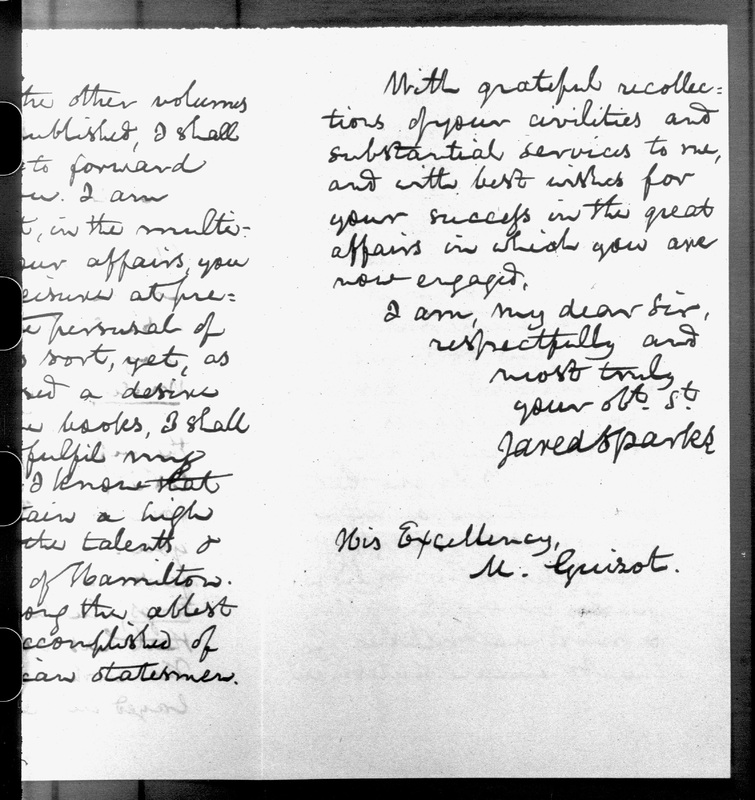 the other volumes
ublished, I shall
to forward
I am
t, in the multi-
our affairs, you
eisure at pre=
perusal of
s sort, yet, as
sed a desire
books, I shall
fulfil my
I know that
tain a high
the talents &
of Hamilton.
ong the ablest
ccomplished of
can statesmen.
With grateful recollec=
tions of your civilities and
substantial services to me,
and with best wishes for
your success in the great
affairs in which you are
now engaged,
I am, my dear Sir,
respectfully and
most truly
your obt. St.
Jared Sparks
His Excellency,
M. Guizot.